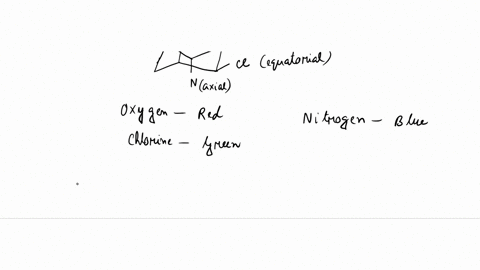 Cl (equatorial)
N (axial)
Oxygen – Red
Nitrogen – Blue
Chlorine – Green